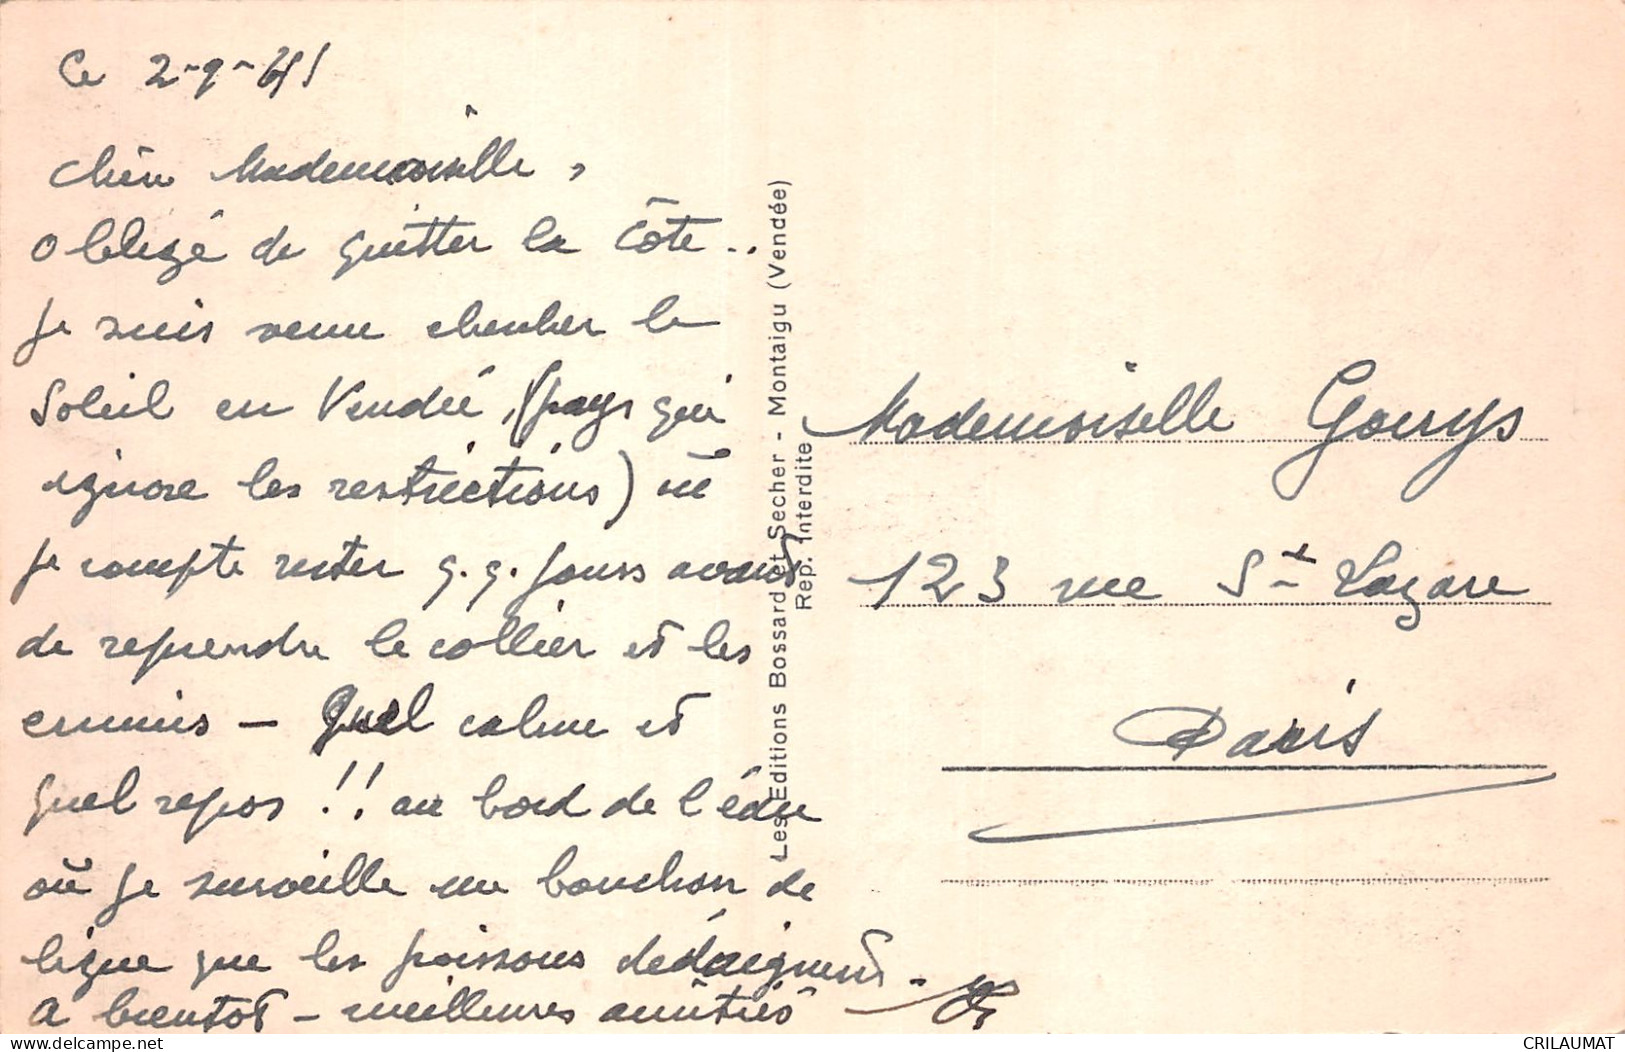 Ce 2-9-41
Chère Mademoiselle,
Obligé de quitter la Côte..
Je suis venu chercher le
Soleil en Vendée, (pays qui
ignore les restrictions) où
je compte rester q.q. jours avant
de reprendre le collier et les
ennuis — Quel calme et
quel repos !! au bord de l'eau
où je surveille un bouchon de
ligne que les poissons dédaignent.
A bientôt — meilleures amitiés
Les Editions Bossard et Secher - Montaigu (Vendée)
Rep. Interdite
Mademoiselle Gourys
123 rue St Lazare
Paris
delcampe.net
CRILAUMAT